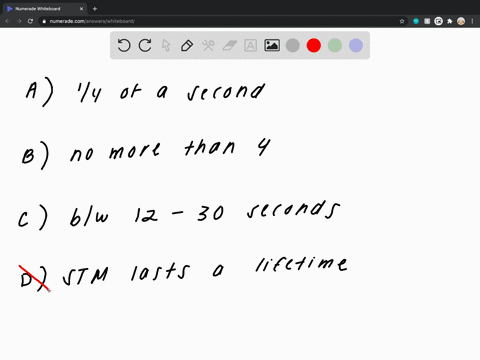 Numerade Whiteboard
numerade.com/answers/whiteboard/
A) 1/4 of a second
B) no more than 4
C) b/w 12 - 30 seconds
D) STM lasts a lifetime